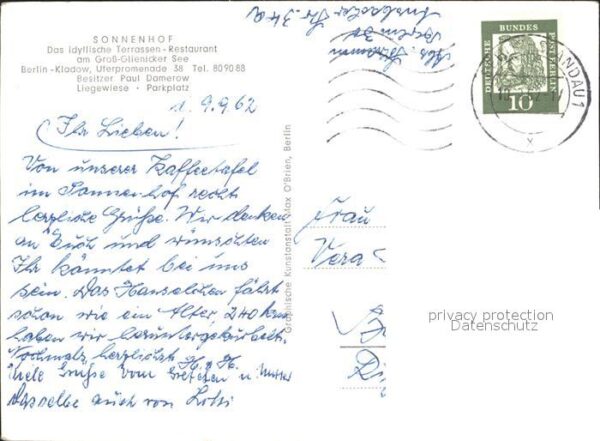 SONNENHOF
Das idyllische Terrassen-Restaurant
am Groß-Glienicker See
Berlin-Kladow, Uferpromenade 38 Tel. 80 90 88
Besitzer Paul Damerow
Liegewiese · Parkplatz
1. 9. 9. 62
Ihr Lieben!
Von unserer Kaffeetafel
im Sonnenhof recht
herzliche Grüße. Wir denken
an Euch und wünschten
Ihr könntet bei uns
sein. Das Hänselchen fährt
schon wie ein Alter, 240 km
haben wir heruntergekurbelt.
Nochmals herzlichst H. H.
Viele Grüße vom Gretchen u. Mutter
Dasselbe auch von Lotti
Graphische Kunstanstalt Max O'Brien, Berlin
Berlin 30
Ansbacher Str. 34a
DEUTSCHE BUNDESPOST BERLIN
10
SPANDAU 1
Frau
Vera
privacy protection
Datenschutz